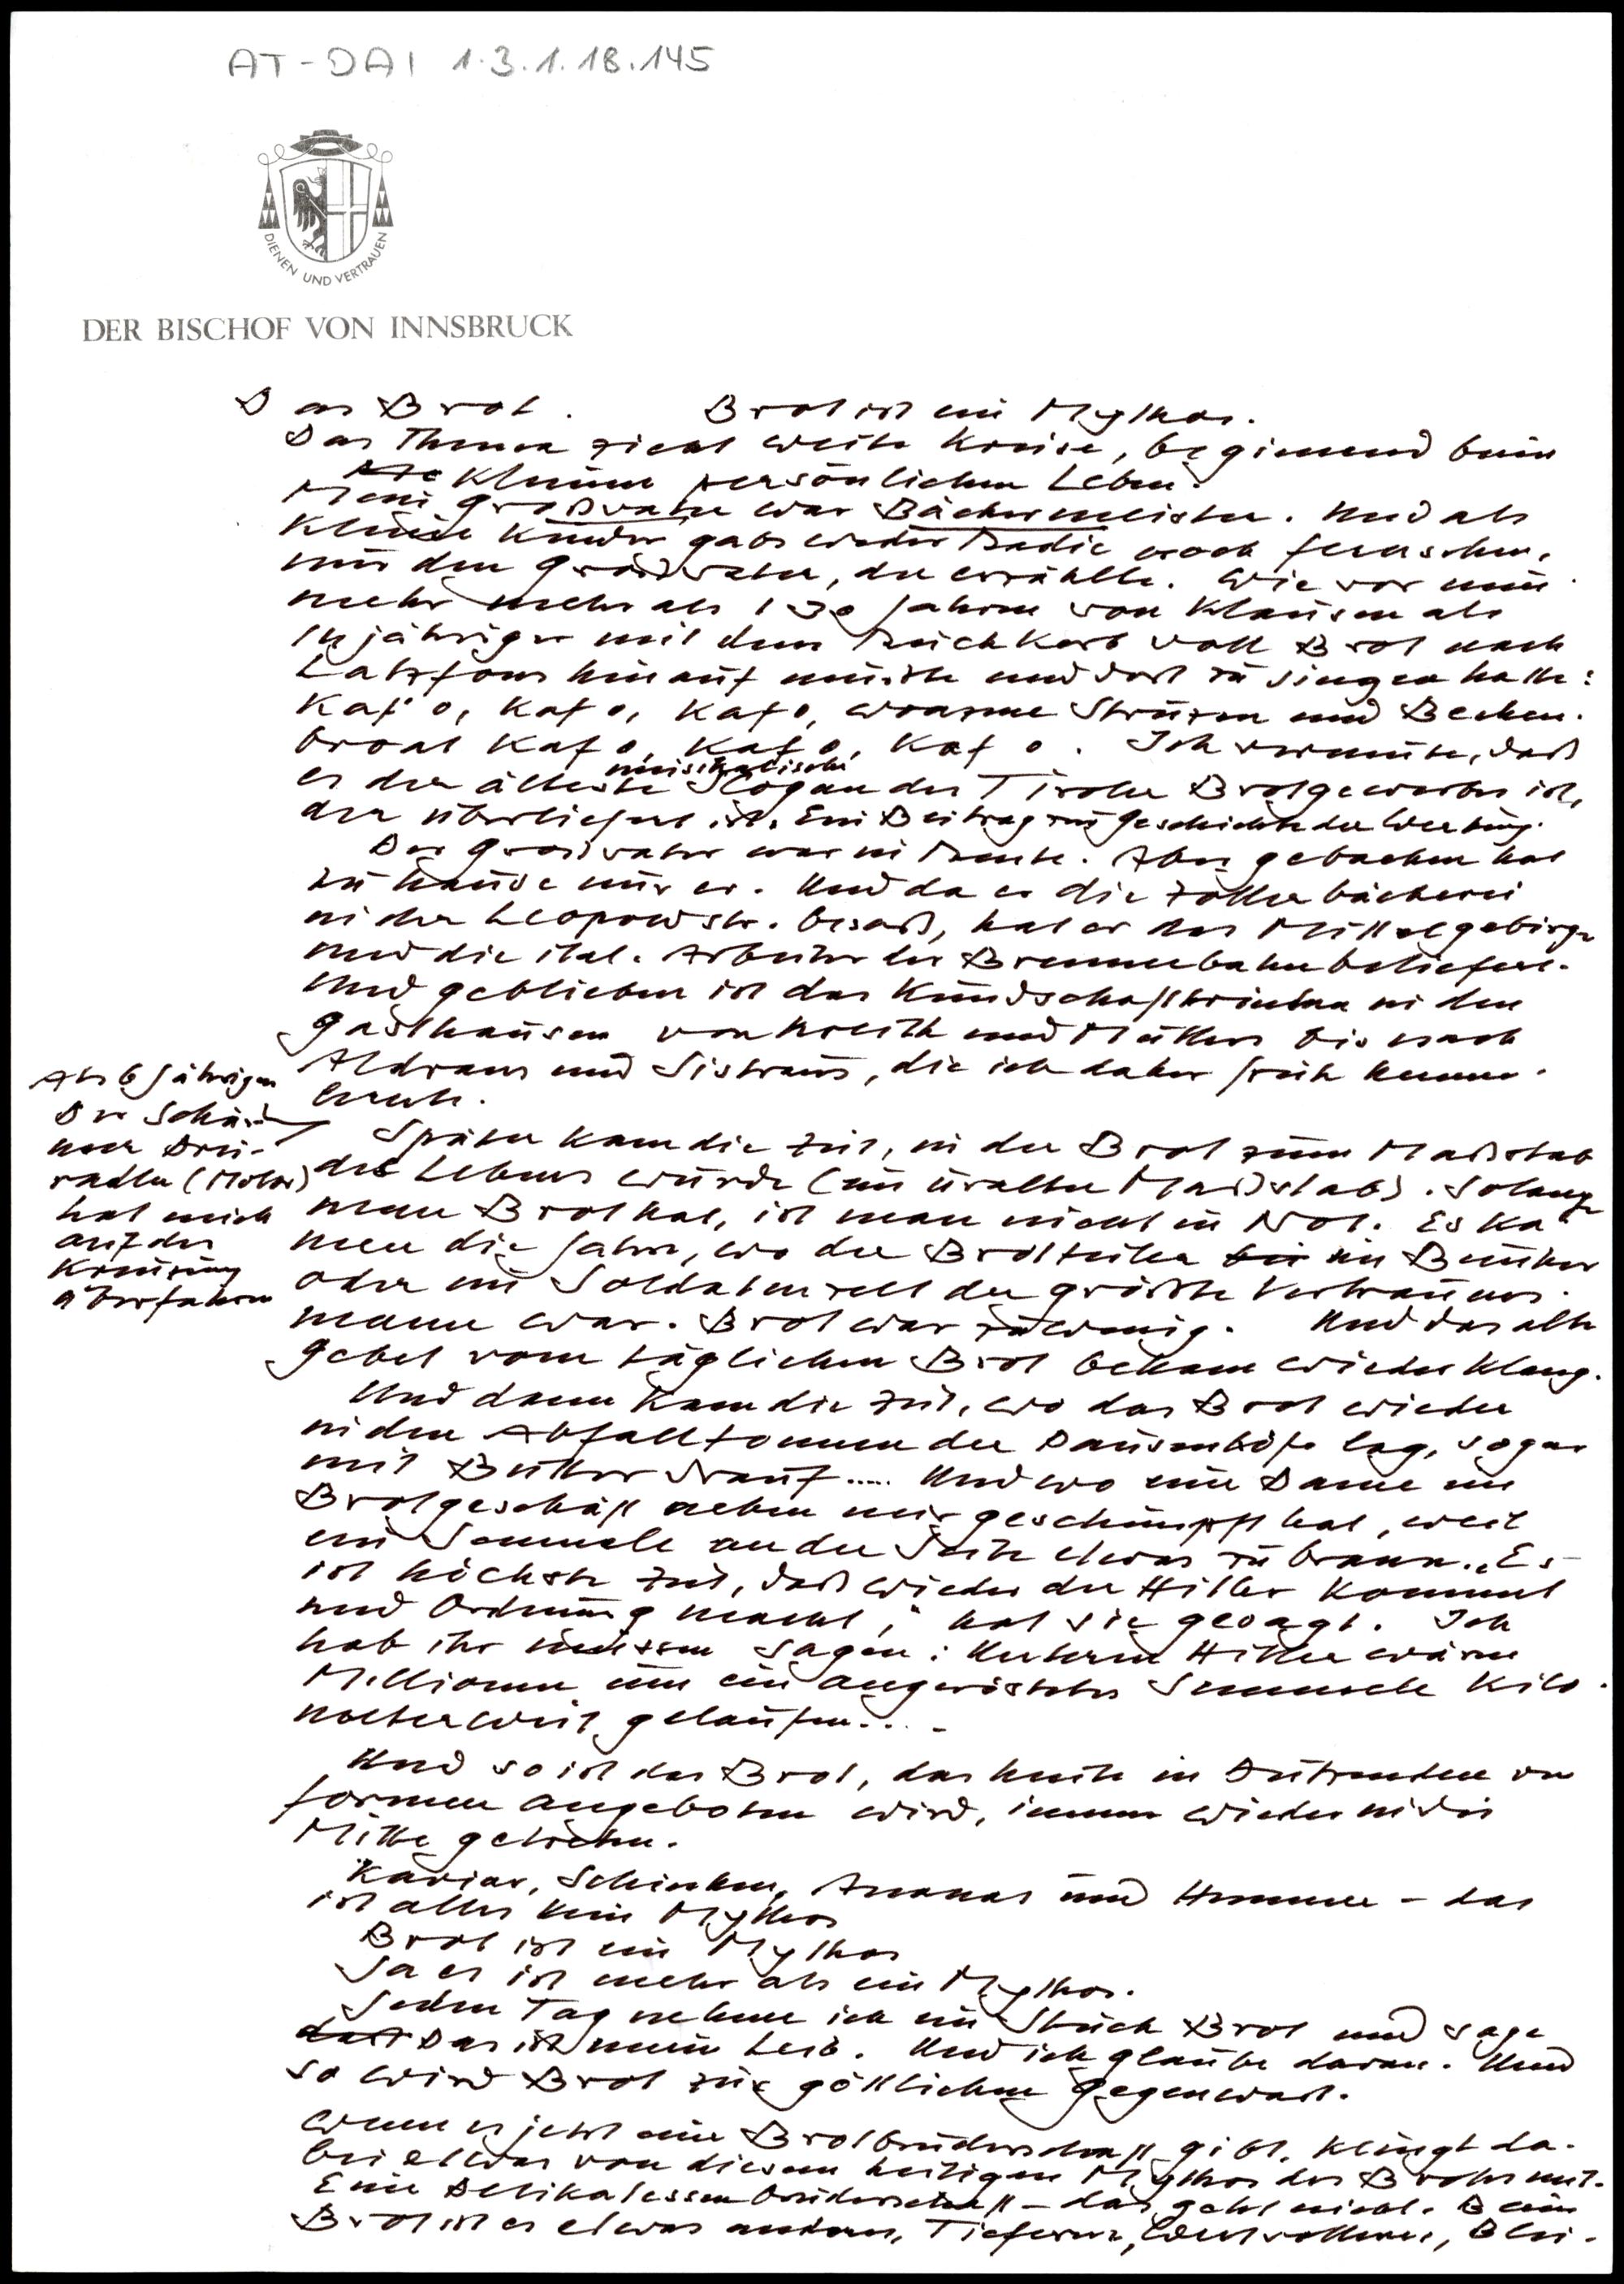 AT-DAI 1.3.1.18.145
DIENEN UND VERTRAUEN
DER BISCHOF VON INNSBRUCK
Das Brot. Brot ist ein Mythos.
Das Thema zieht weite Kreise, beginnend beim
kleinen persönlichen Leben.
Mein Großvater war Bäckermeister. Und als
kleine Kinder gabs weder Radio noch Fernsehen,
nur den Großvater, der erzählte. Wie vor nun
mehr mehr als 130 Jahren von Klausen als
14 jähriger mit dem Buckelkorb voll Brot nach
Latzfons hinauf mußte und dort zu singen hatte:
Kaf o, Kaf o, Kaf o, warme Strutzn und Becken-
broat Kaf o, Kaf o, Kaf o. Ich vermute, daß
es der älteste musikalische Slogan des Tiroler Brotgewerbes ist,
der überliefert ist. Ein Beitrag zur Geschichte der Werbung.
Der Großvater war in Rente. Aber gebacken hat
zu hause nur er. Und da er die Zöttlerbäckerei
in der Leopoldstr. besaß, hat er das Mittelgebirge
und die ital. Arbeiter der Brennerbahn beliefert.
Und geblieben ist das Kundschafttrinken in den
Gasthäusern von Kreith und Mutters bis nach
Aldrans und Sistrans, die ich daher früh kennen-
lernte.
Als 6 jährigen
Der
Drei-
radler (Motor)
hat mich
auf der
Kreuzung
überfahren
Später kam die Zeit, in der Brot zum Maßstab
des Lebens wurde (ein uralter Maßstab). Solange
man Brot hat, ist man nicht in Not. Es ka-
men die Jahre, wo der Brotteiler im Bunker
oder im Soldatenzelt der größte Vertrauens-
mann war. Brot war zuwenig. Und das alte
Gebet vom täglichen Brot bekam wieder Klang.
Und dann kam die Zeit, wo das Brot wieder
in den Abfalltonnen der Pausenhöfe lag, sogar
mit Butter drauf..... Und wo eine Dame im
Brotgeschäft neben mir geschimpft hat, weil
ein Semmele an der Seite etwas zu braun. „Es
ist höchste Zeit, daß wieder der Hitler kommt
und Ordnung macht," hat sie gesagt. Ich
hab ihr müssen sagen: Unterm Hitler wären
Millionen um ein angeröstetes Semmele kilo-
meterweit gelaufen....
Und so ist das Brot, das heute in Dutzenden von
Formen angeboten wird, immer wieder in die
Mitte getreten.
Kaviar, Schinken, Ananas und Hummer – das
ist alles kein Mythos
Brot ist ein Mythos
Ja es ist mehr als ein Mythos.
Jeden Tag nehme ich ein Stück Brot und sage
Das ist mein Leib. Und ich glaube daran. Und
so wird Brot zur göttlichen Gegenwart.
Wenn es jetzt eine Brotbruderschaft gibt, klingt da-
bei etwas von diesem heiligen Mythos des Brotes mit.
Eine Delikatessenbruderschaft – das geht nicht. Beim
Brot ist es etwas anderes, Tieferes, Wertvolleres, Blei-